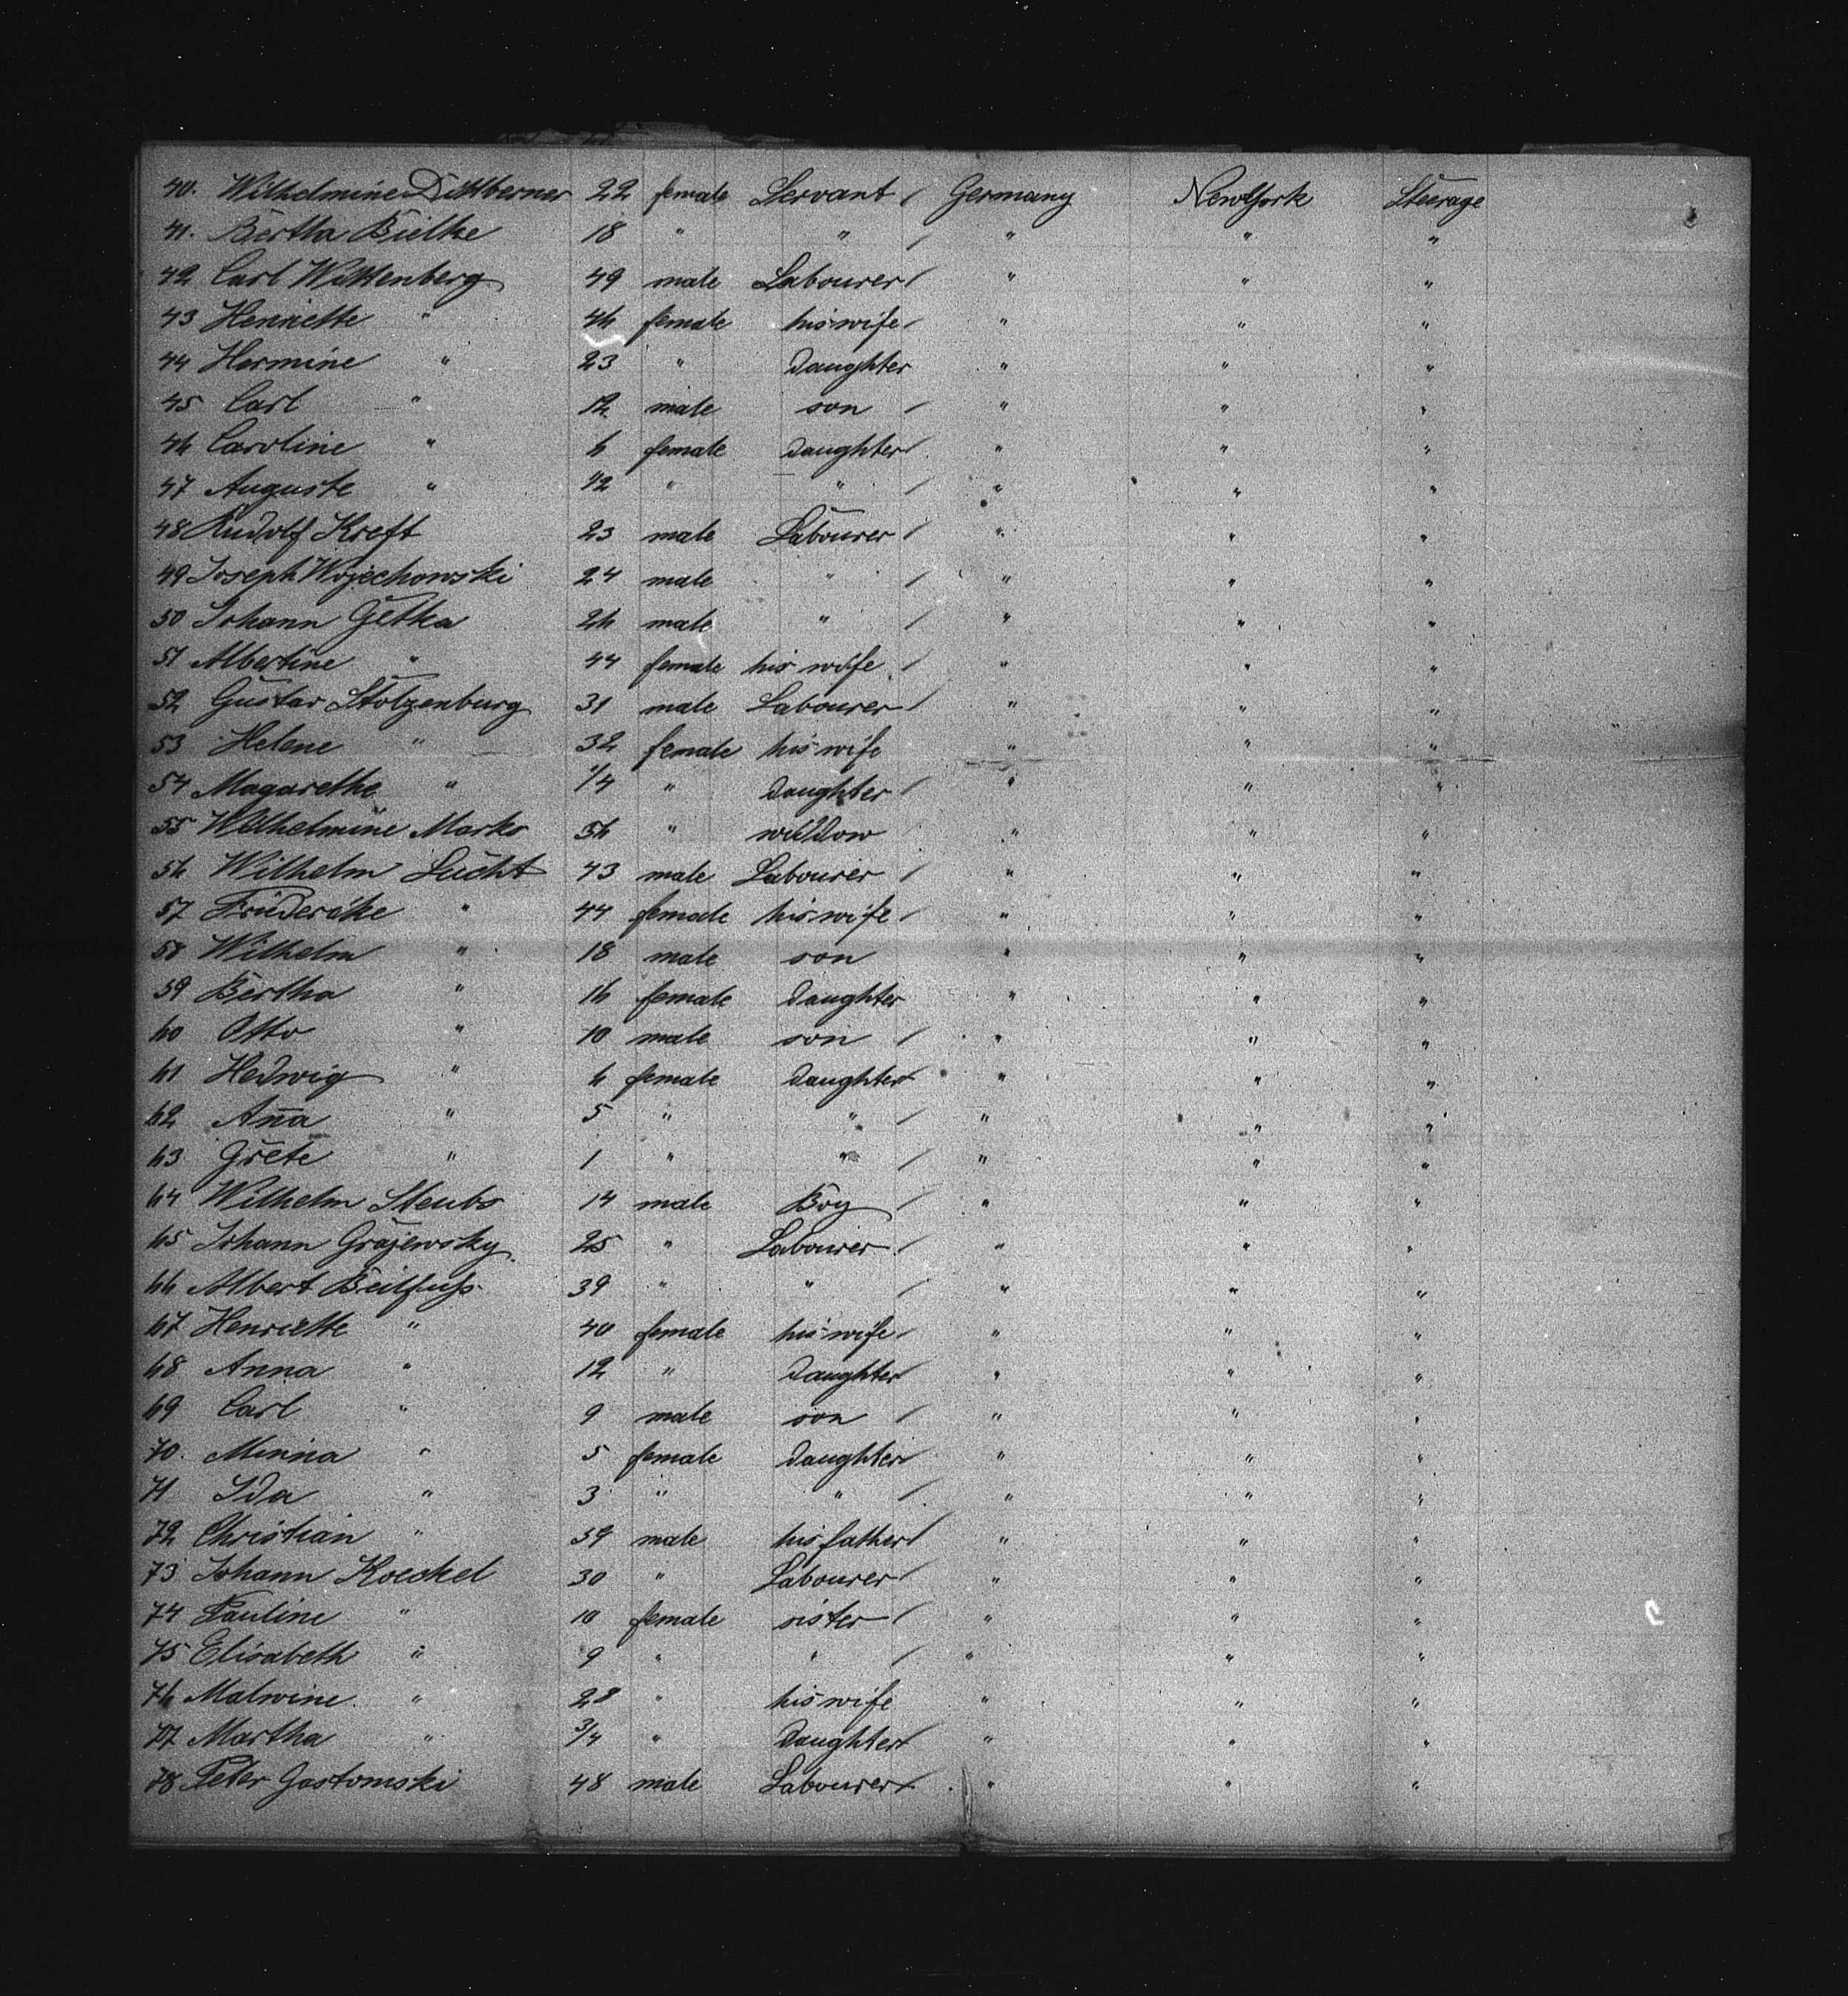 40. Wilhelmine Dittberner 22 female Servant / Germany New York Steerage
41. Bertha Bielke 18 " " / " " "
42 Carl Wittenberg 49 male Labourer / " " "
43 Henriette " 46 female his wife / " " "
44 Hermine " 23 " Daughter " " "
45 Carl " 12 male son / " " "
46 Caroline " 6 female Daughter / " " "
47 Auguste " 1/2 " " / " " "
48 Rudolf Kreft 23 male Labourer / " " "
49 Joseph Wojechowski 24 male " / " " "
50 Johann Getka 26 male " / " " "
51 Albertine " 44 female his wife / " " "
52 Gustav Stolzenburg 31 male Labourer / " " "
53 Helene " 32 female his wife " " "
54 Magarethe " 1/4 " Daughter / " " "
55 Wilhelmine Marks 56 " widdow " " "
56 Wilhelm Lucht 43 male Labourer / " " "
57 Friederike " 44 female his wife / " " "
58 Wilhelm " 18 male son " " "
59 Bertha " 16 female Daughter " " "
60 Otto " 10 male son / " " "
61 Hedwig " 6 female Daughter / " " "
62 An̄a " 5 " " / " " "
63 Grete " 1 " " / " " "
64 Wilhelm Steubs 14 male Boy / " " "
65 Johann Grajewsky 25 " Labourer / " " "
66 Albert Beilfuss 39 " " / " " "
67 Henriette " 40 female his wife / " " "
68 Anna " 12 " Daughter / " " "
69 Carl " 9 male son / " " "
70. Minna " 5 female Daughter / " " "
71 Ida " 3 " " / " " "
72 Christian " 59 male his father / " " "
73 Johann Koeckel 30 " Labourer / " " "
74 Pauline " 10 female sister / " " "
75 Elisabeth " 9 " " / " " "
76 Malwine " 28 " his wife " " "
77 Martha " 3/4 " Daughter / " " "
78 Peter Gostomski 48 male Labourer / " " "